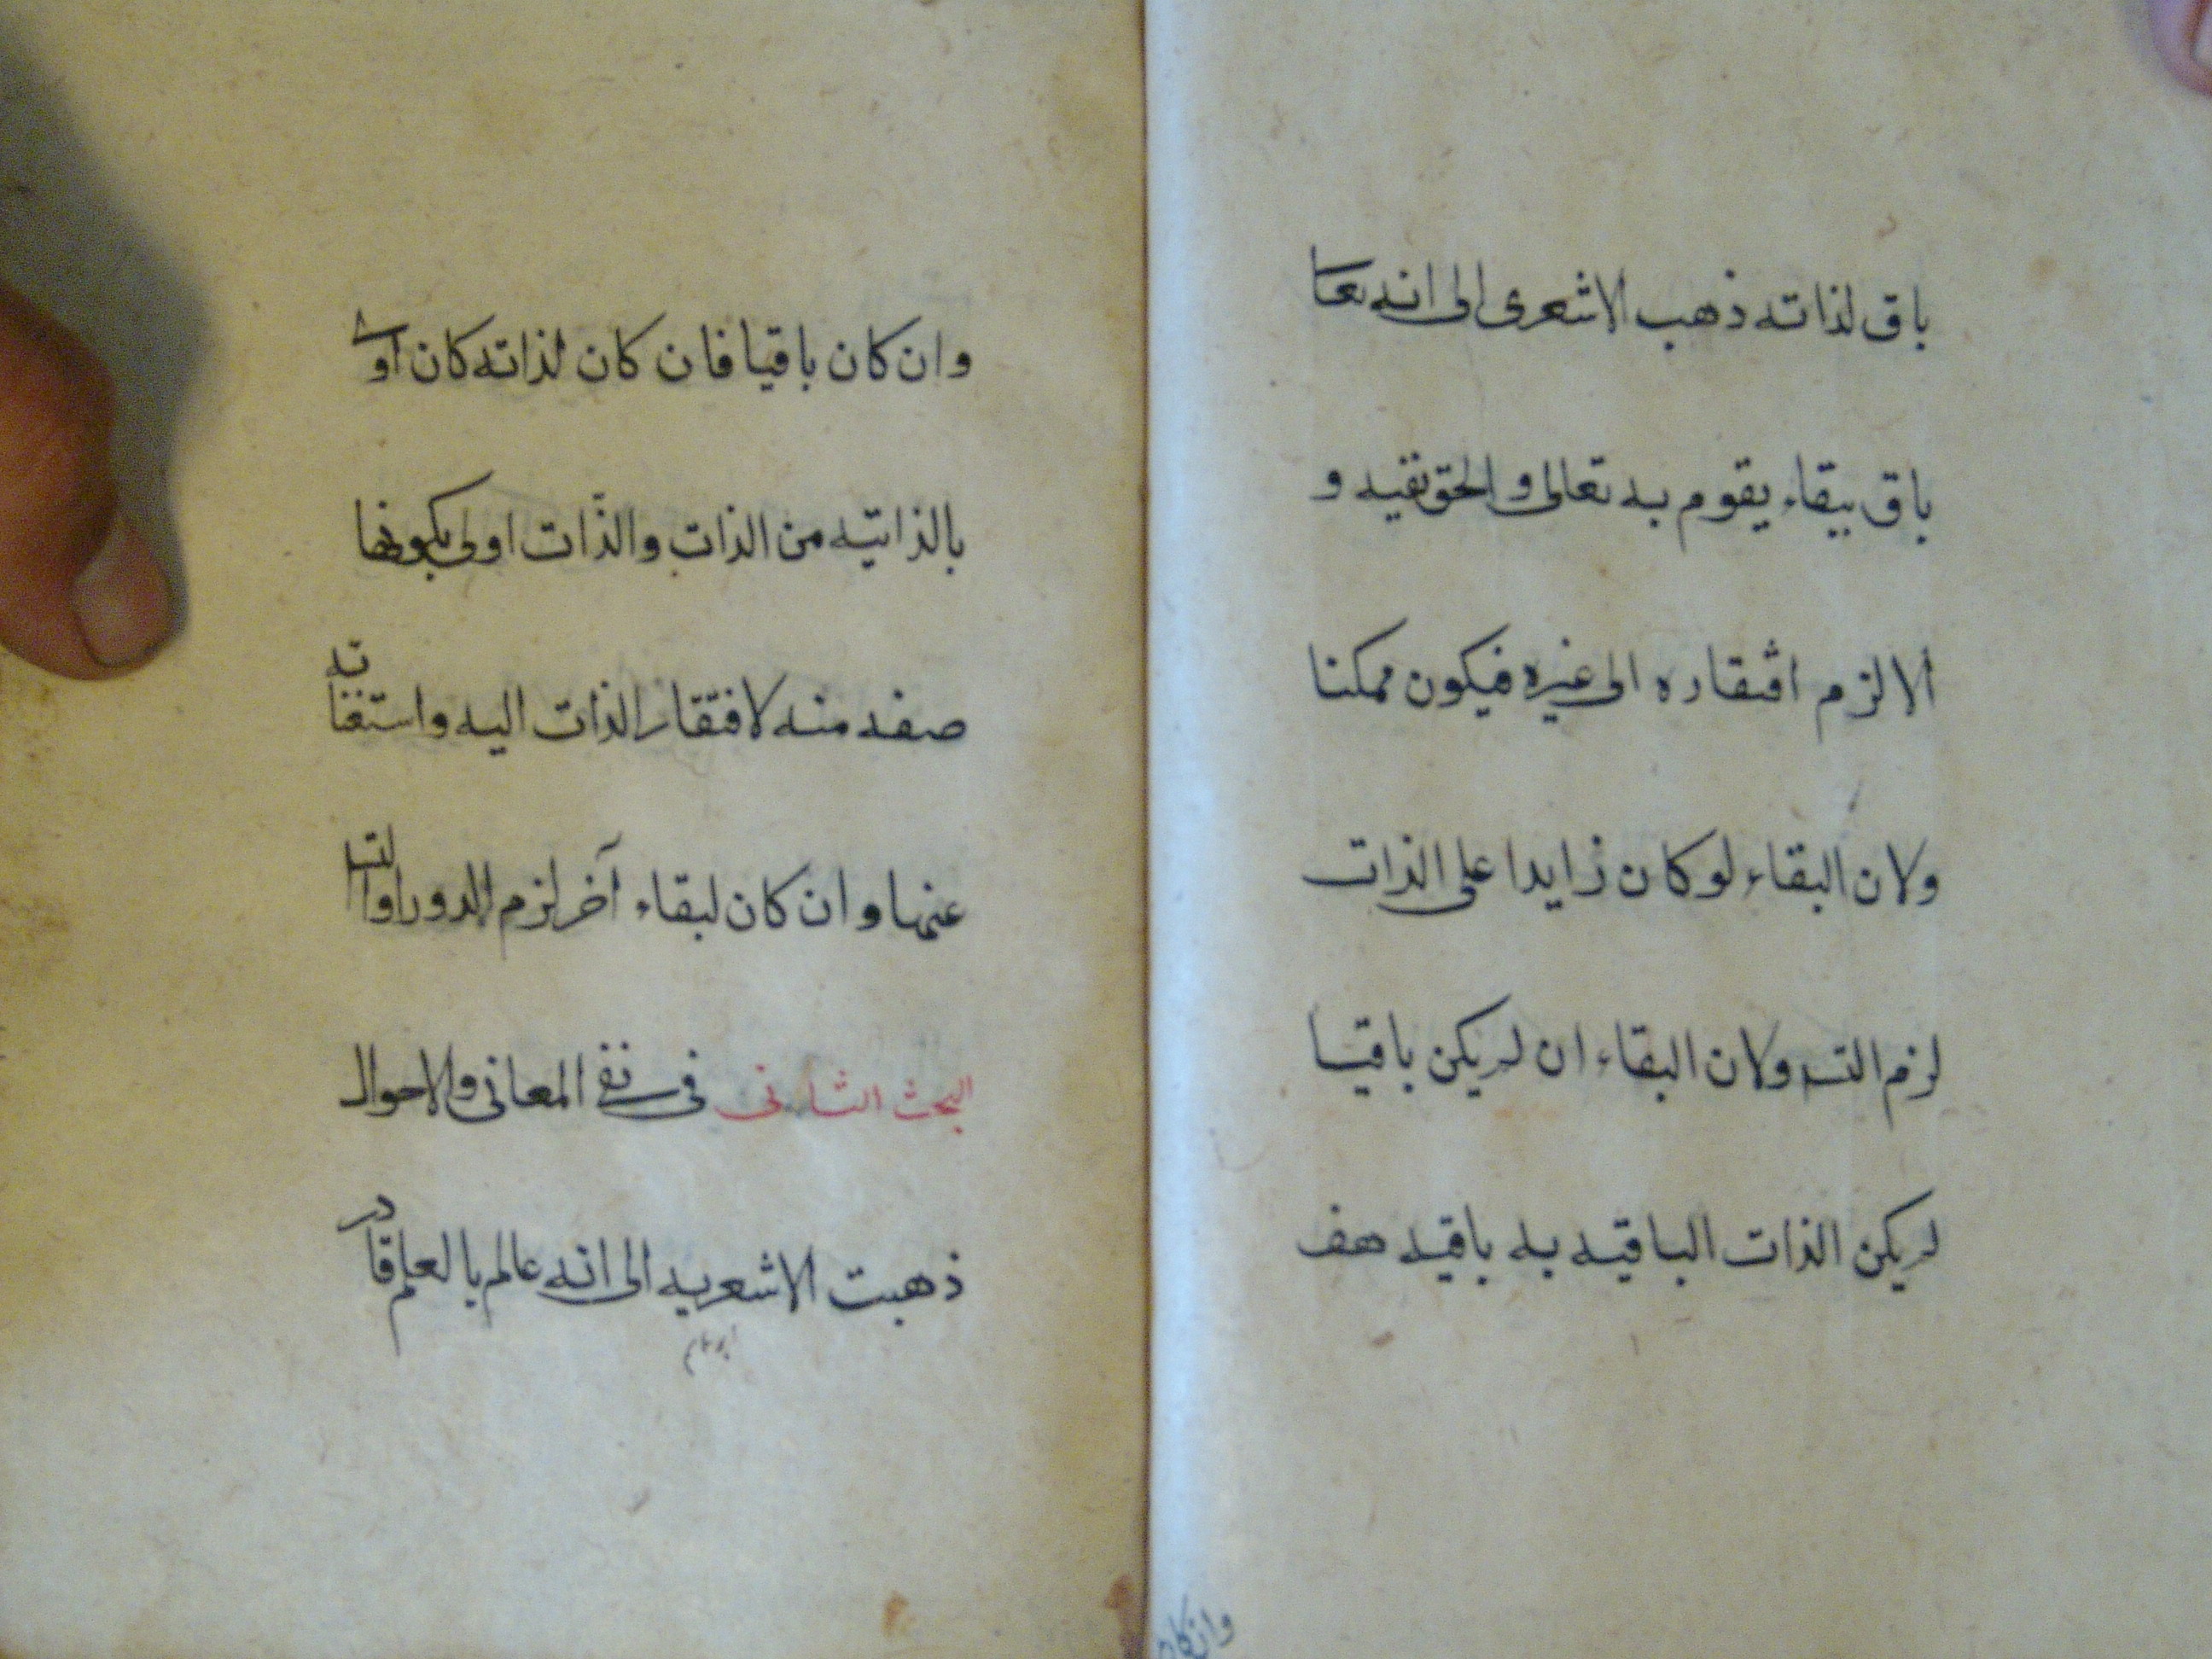 باق لذاته ذهب الاشعرى الى انه تعا
باق ببقاء يقوم به تعالى والحق نفيه و
الا لزم افتقاره الى غيره فيكون ممكنا
ولان البقاء لو كان زايدا على الذات
لزم التسـ ولان البقاء ان لم يكن باقيا
لم يكن الذات الباقيه به باقيه هف
وان كان
وان كان باقيا فان كان لذاته كان اولى
بالذاتيه من الذات والذّات اولى بكونها
صفه منه لافتقار الذات اليه واستغنائه
عنها وان كان لبقاء آخر لزم الدور او التسـ
البحث الثانى فى نفى المعانى والاحوال
ذهبت الاشعريه الى انه عالم بالعلم قادر